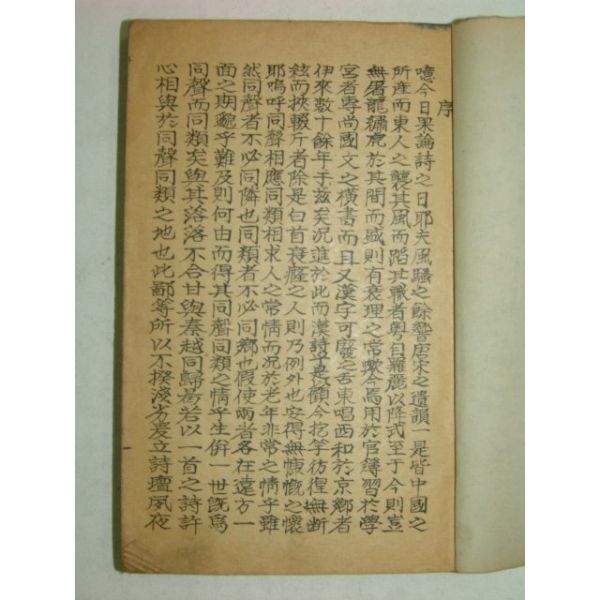 序
噫今日果論詩之日耶夫風騷之餘響唐宋之遺韻一是皆中國之
所産而東人之襲其風而蹈其職者粤自羅麗以降式至于今則豈
無屠龍繡虎於其間而盛則有衰理之常歟今焉用於官簿習於學
宮者專尚國文之横書而且又漢字可廢之舌東唱西和於京鄉者
伊來數十餘年于玆矣況進於此而漢詩乎是以顧今抱竽彷徨撫断
絃而挾輟斤者除是白首衰癃之人則乃例外也安得無慷慨之懷
耶嗚呼同聲相應同類相求人之常情而況於老年非常之情乎雖
然同聲者不必同隣也同類者不必同鄉也假使兩者各在遠方一
面之期邈乎難及則何由而得其同聲同類之情乎生倂一世旣爲
同聲而同類矣與其落落不合甘與秦越同歸曷若以一首之詩許
心相與於同聲同類之地也此鄙等所以不揆淺劣爰立詩壇夙夜